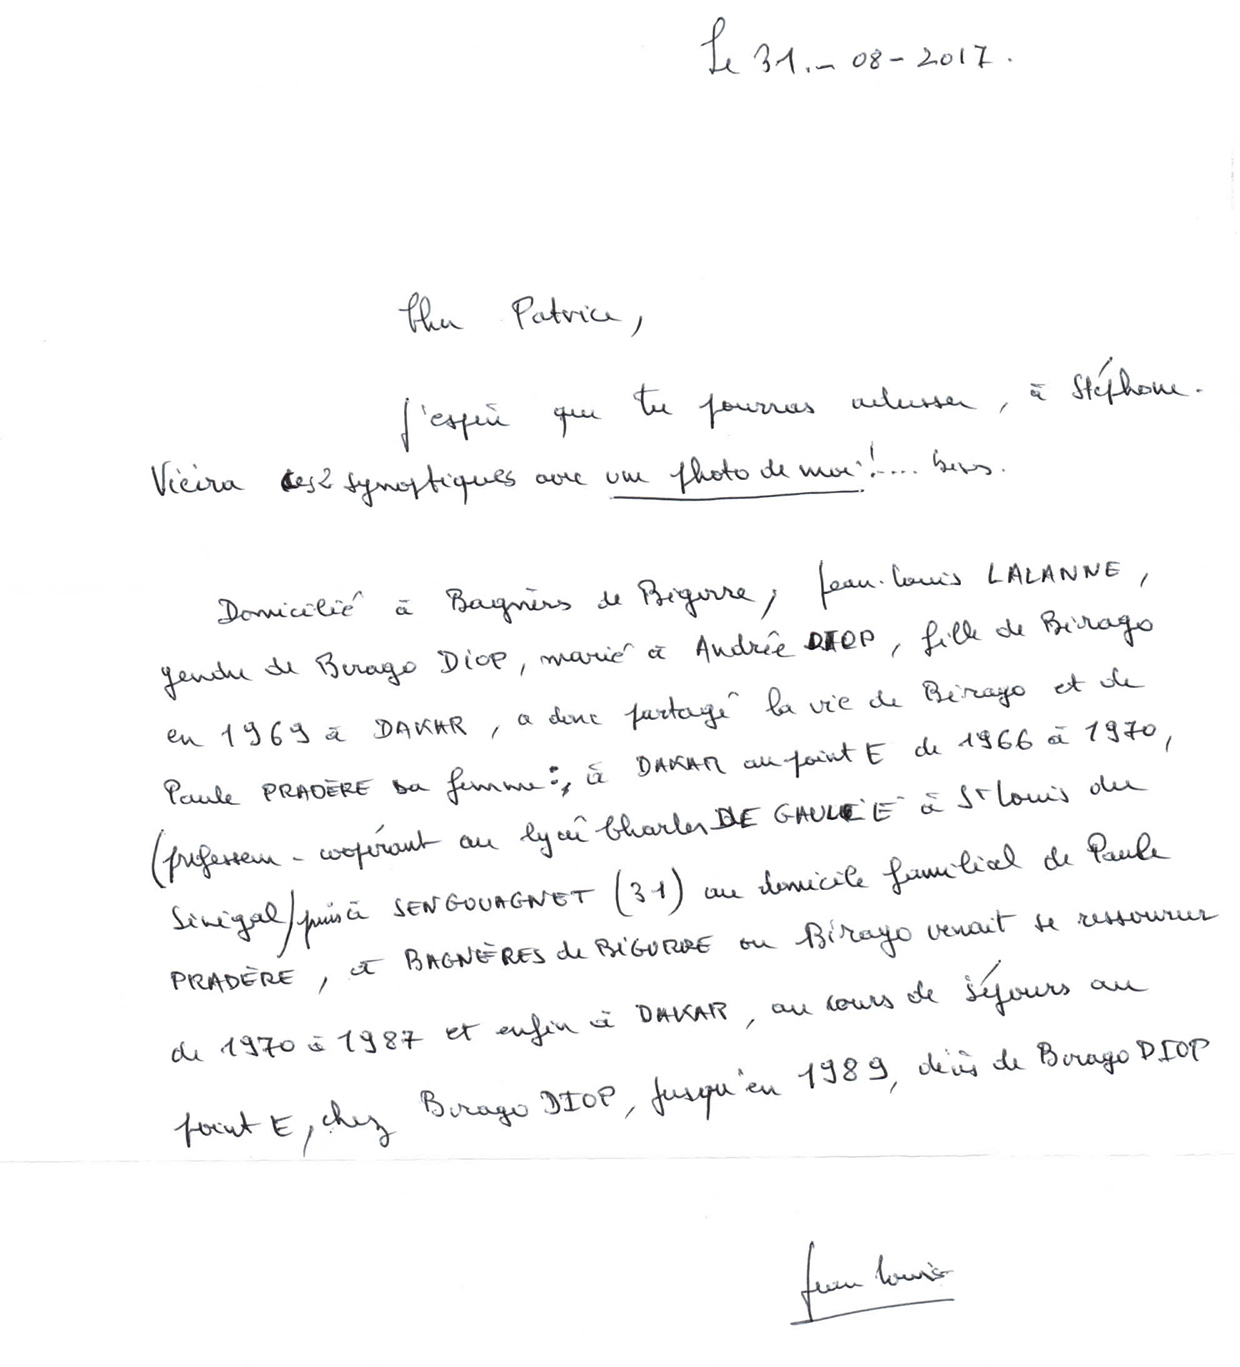 Le 31.- 08-2017.
Cher Patrice,
J'espère que tu pourras adresser, à Stéphane.
Vieira ces 2 synoptiques avec une photo de moi!....
Domicilié à Bagnères de Bigorre, Jean-Louis LALANNE,
gendre de Birago DIOP, marié à Andrée DIOP, fille de Birago
en 1969 à DAKAR, a donc partagé la vie de Birago et de
Paule PRADÈRE sa femme:, à DAKAR au point E de 1966 à 1970,
(professeur - coopérant au lycée Charles DE GAULLE à St Louis du
Sénégal) puis à SENGOUAGNET (31) au domicile familial de Paule
PRADÈRE, à BAGNÈRES de BIGORRE ou Birago venait se ressourcer
de 1970 à 1987 et enfin à DAKAR, au cours de séjours au
point E, chez Birago DIOP, jusqu'en 1989, décès de Birago DIOP
Jean Louis